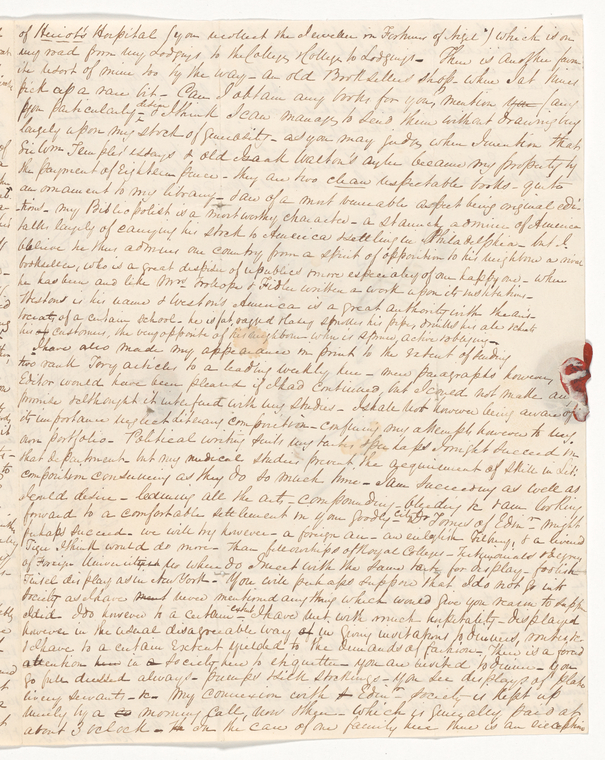 of Heriot's Hospital (you recollect the Jeweller in Fortunes of Nigel") which is on
my road from my Lodgings to the College & College to Lodgings - There is another favor
ite resort of mine too by the way - an old Booksellers shop where I at times
pick up a rare bit - Can I obtain any books for you, mention (any
you particularly desire I think I can manage to send them without drawing very
largely upon my stock of generosity - as you may judge when I mention that
Sir Wm Temple's essays & old Isaak Walton's angler became my property by
the payment of Eighteen pence - they are two clean respectable books - quite
an ornament to my library - & are of a most venerable aspect being original edi-
tions - my Bibliopolist is a most worthy character - a staunch admirer of America
talks largely of carrying his stock to America & settling in Philadelphia - but I
believe he thus admires our country from a spirit of opposition to his neighbour a
bookseller, who is a great despiser of republics & more especially of our happy one - where
he has been and like Mrs Trollope & Fidler written a work upon its institutions -
Weston is his name & Weston's America is a great authority with the aris-
tocrats of a certain school - he is fat, ragged & lazy smokes his pipe, drinks his ale &
his customers, the very opposite of his neighbour who is spruce, active & obliging -
I have also made my appearance in print to the extent of
two rank Tory articles to a leading weekly here - mere paragraphs however
Editor would have been pleased if I had continued, but I could not make any
promise as I thought it interfered with my studies - I shall not however being aware of
its importance neglect literary composition - confining my attempts however to my
own portfolio - Political writing suits my taste & perhaps I might succeed in
that department - but my medical studies prevent the acquirement of skill in lit:
composition consuming as they do so much time - I am succeeding as well as
I could desire - learning all the arts - compounding - bleeding &c & am looking
forward to a comfortable settlement in your goodly city Dr Somes of Edinr might
perhaps succeed - we will try however - a foreign air - an english & a
I think would do more - than fellowships of Royal Colleges - & degrees
of Foreign Universities where do I meet with the same taste for display - foolish
Tinsel display as in New York - You will perhaps suppose that I do not go into
society as I have never mentioned anything which would give you reason to suppose
I did. I do however to a certain extent - I have met with much hospitality - displayed
however in the usual disagreeable way in giving invitations to dinners, routs &c
& I have to a certain extent yielded to the demands of fashion - there is a forced
attention in society here to etiquette - you are invited to dinner - you
go full dressed always - pumps & silk stockings - you see displays of plate
livery servants - &c - My connexion with Edinr society is kept up
merely by a morning call, now & then - which is generally paid at
about 3 o'clock - on the case of one family here there is an exception